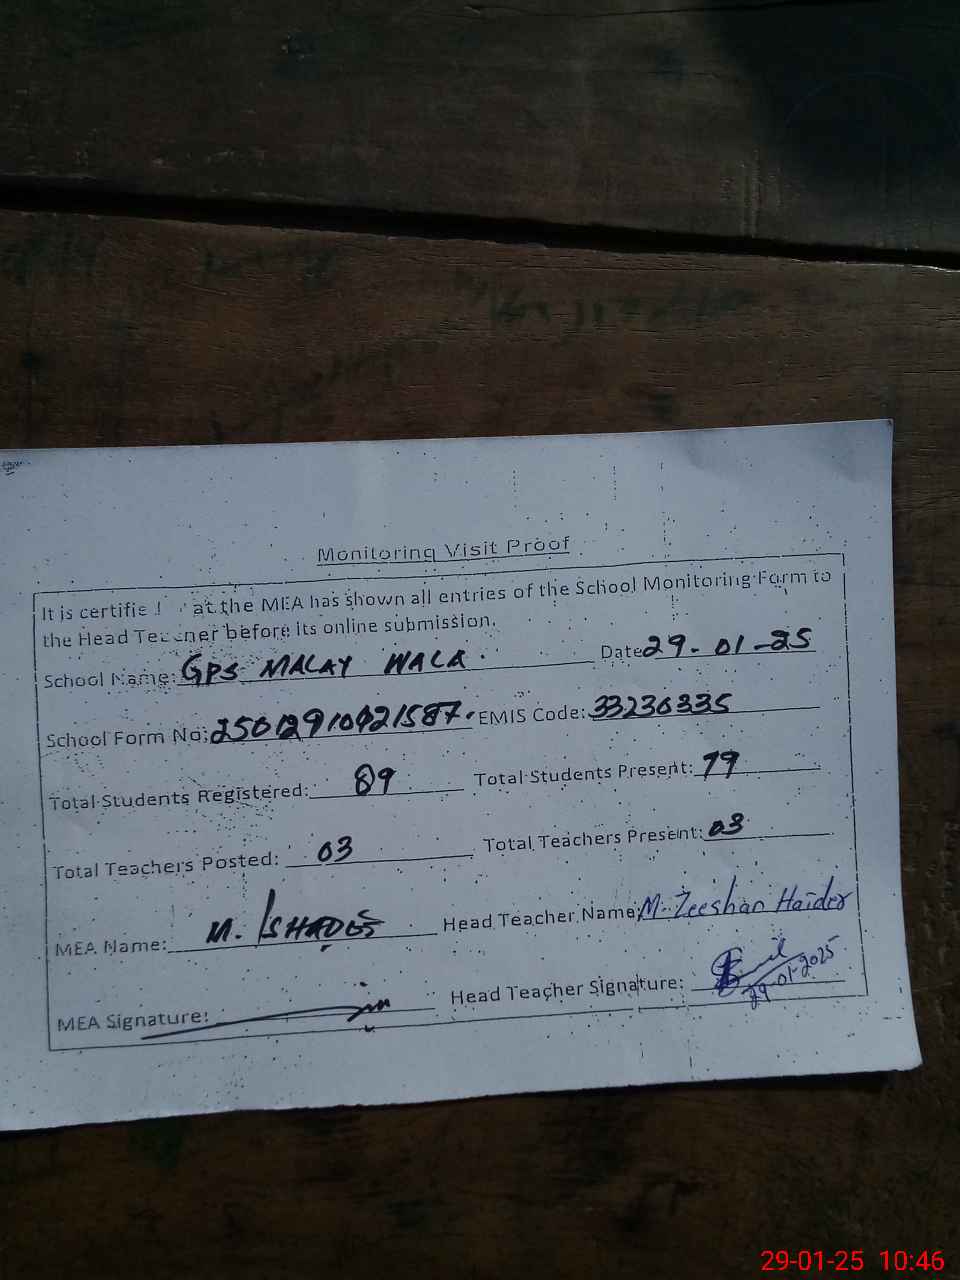 Monitoring Visit Proof
It is certified at the MEA has shown all entries of the School Monitoring Form to
the Head Teacher before its online submission.
School Name: GPS MALAY WALA. Date 29-01-25
School Form No: EMIS Code: 33230335
Total Students Registered: 89 Total Students Present: 79
Total Teachers Posted: 03 Total Teachers Present: 03
MEA Name: M. Head Teacher Name: M. Zeeshan Haider
MEA Signature: Head Teacher Signature:
29-01-2025
29-01-25 10:46